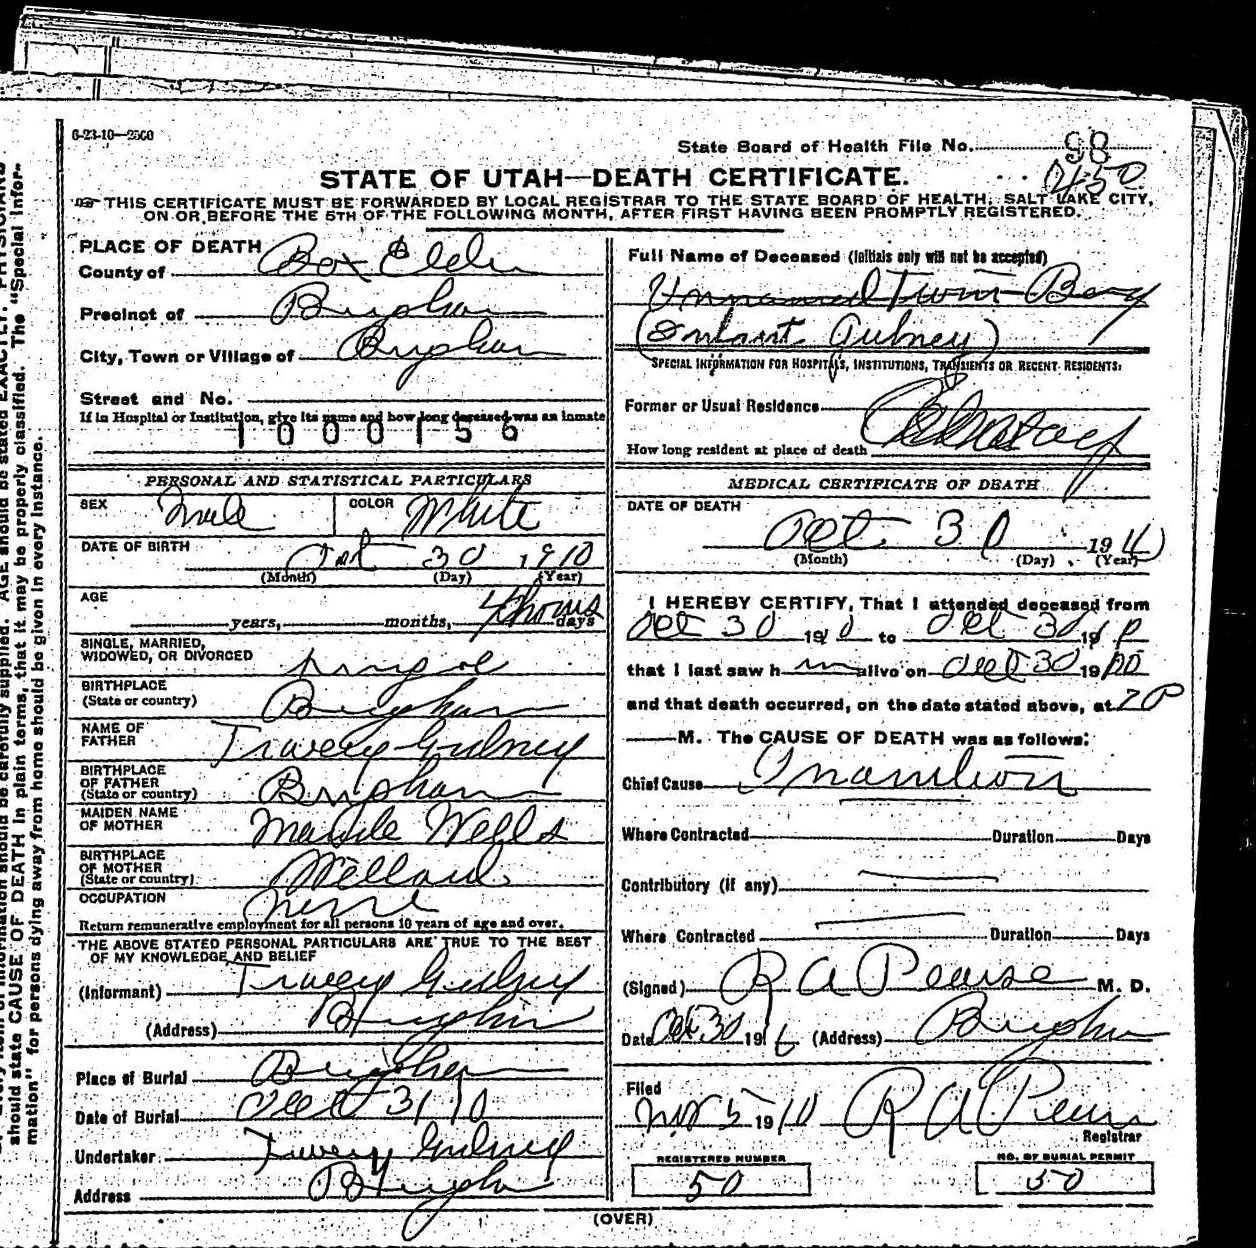 6-23-10—2500
State Board of Health File No. 98
450
STATE OF UTAH—DEATH CERTIFICATE.
THIS CERTIFICATE MUST BE FORWARDED BY LOCAL REGISTRAR TO THE STATE BOARD OF HEALTH, SALT LAKE CITY,
ON OR BEFORE THE 5TH OF THE FOLLOWING MONTH, AFTER FIRST HAVING BEEN PROMPTLY REGISTERED.
PLACE OF DEATH
County of Box Elder
Precinct of Brigham
City, Town or Village of Brigham
Street and No.
If in Hospital or Institution, give its name and how long deceased was an inmate
1000156
PERSONAL AND STATISTICAL PARTICULARS
SEX Male COLOR White
DATE OF BIRTH Oct 30 1910
(Month) (Day) (Year)
AGE
years, months, 4 hours days
SINGLE, MARRIED,
WIDOWED, OR DIVORCED single
BIRTHPLACE
(State or country) Brigham
NAME OF
FATHER Tracey Gidney
BIRTHPLACE
OF FATHER
(State or country) Brigham
MAIDEN NAME
OF MOTHER Maude Wells
BIRTHPLACE
OF MOTHER
(State or country) Willard
OCCUPATION none
Return remunerative employment for all persons 10 years of age and over.
THE ABOVE STATED PERSONAL PARTICULARS ARE TRUE TO THE BEST
OF MY KNOWLEDGE AND BELIEF
(Informant) Tracey Gidney
(Address) Brigham
Place of Burial Brigham
Date of Burial Oct 31 10
Undertaker Tracey Gidney
Address Brigham
Full Name of Deceased (Initials only will not be accepted)
Unnamed Twin Boy
(Infant Gidney)
SPECIAL INFORMATION FOR HOSPITALS, INSTITUTIONS, TRANSIENTS OR RECENT RESIDENTS:
Former or Usual Residence
How long resident at place of death
MEDICAL CERTIFICATE OF DEATH
DATE OF DEATH
Oct 30 19
(Month) (Day) (Year)
I HEREBY CERTIFY, That I attended deceased from
Oct 30 1910 to Oct 30 1910
that I last saw him alive on Oct 30 1910
and that death occurred, on the date stated above, at 7 P
M. The CAUSE OF DEATH was as follows:
Chief Cause Inanition
Where Contracted Duration Days
Contributory (if any)
Where Contracted Duration Days
(Signed) R A Pearse M. D.
Date Oct 30 191 (Address) Brigham
Filed
Nov 5 1910 R A Pearse
Registrar
REGISTERED NUMBER
50
NO. OF BURIAL PERMIT
50
(OVER)
should state CAUSE OF DEATH in plain terms, that it may be properly classified. The "Special Infor-
mation" for persons dying away from home should be given in every instance.